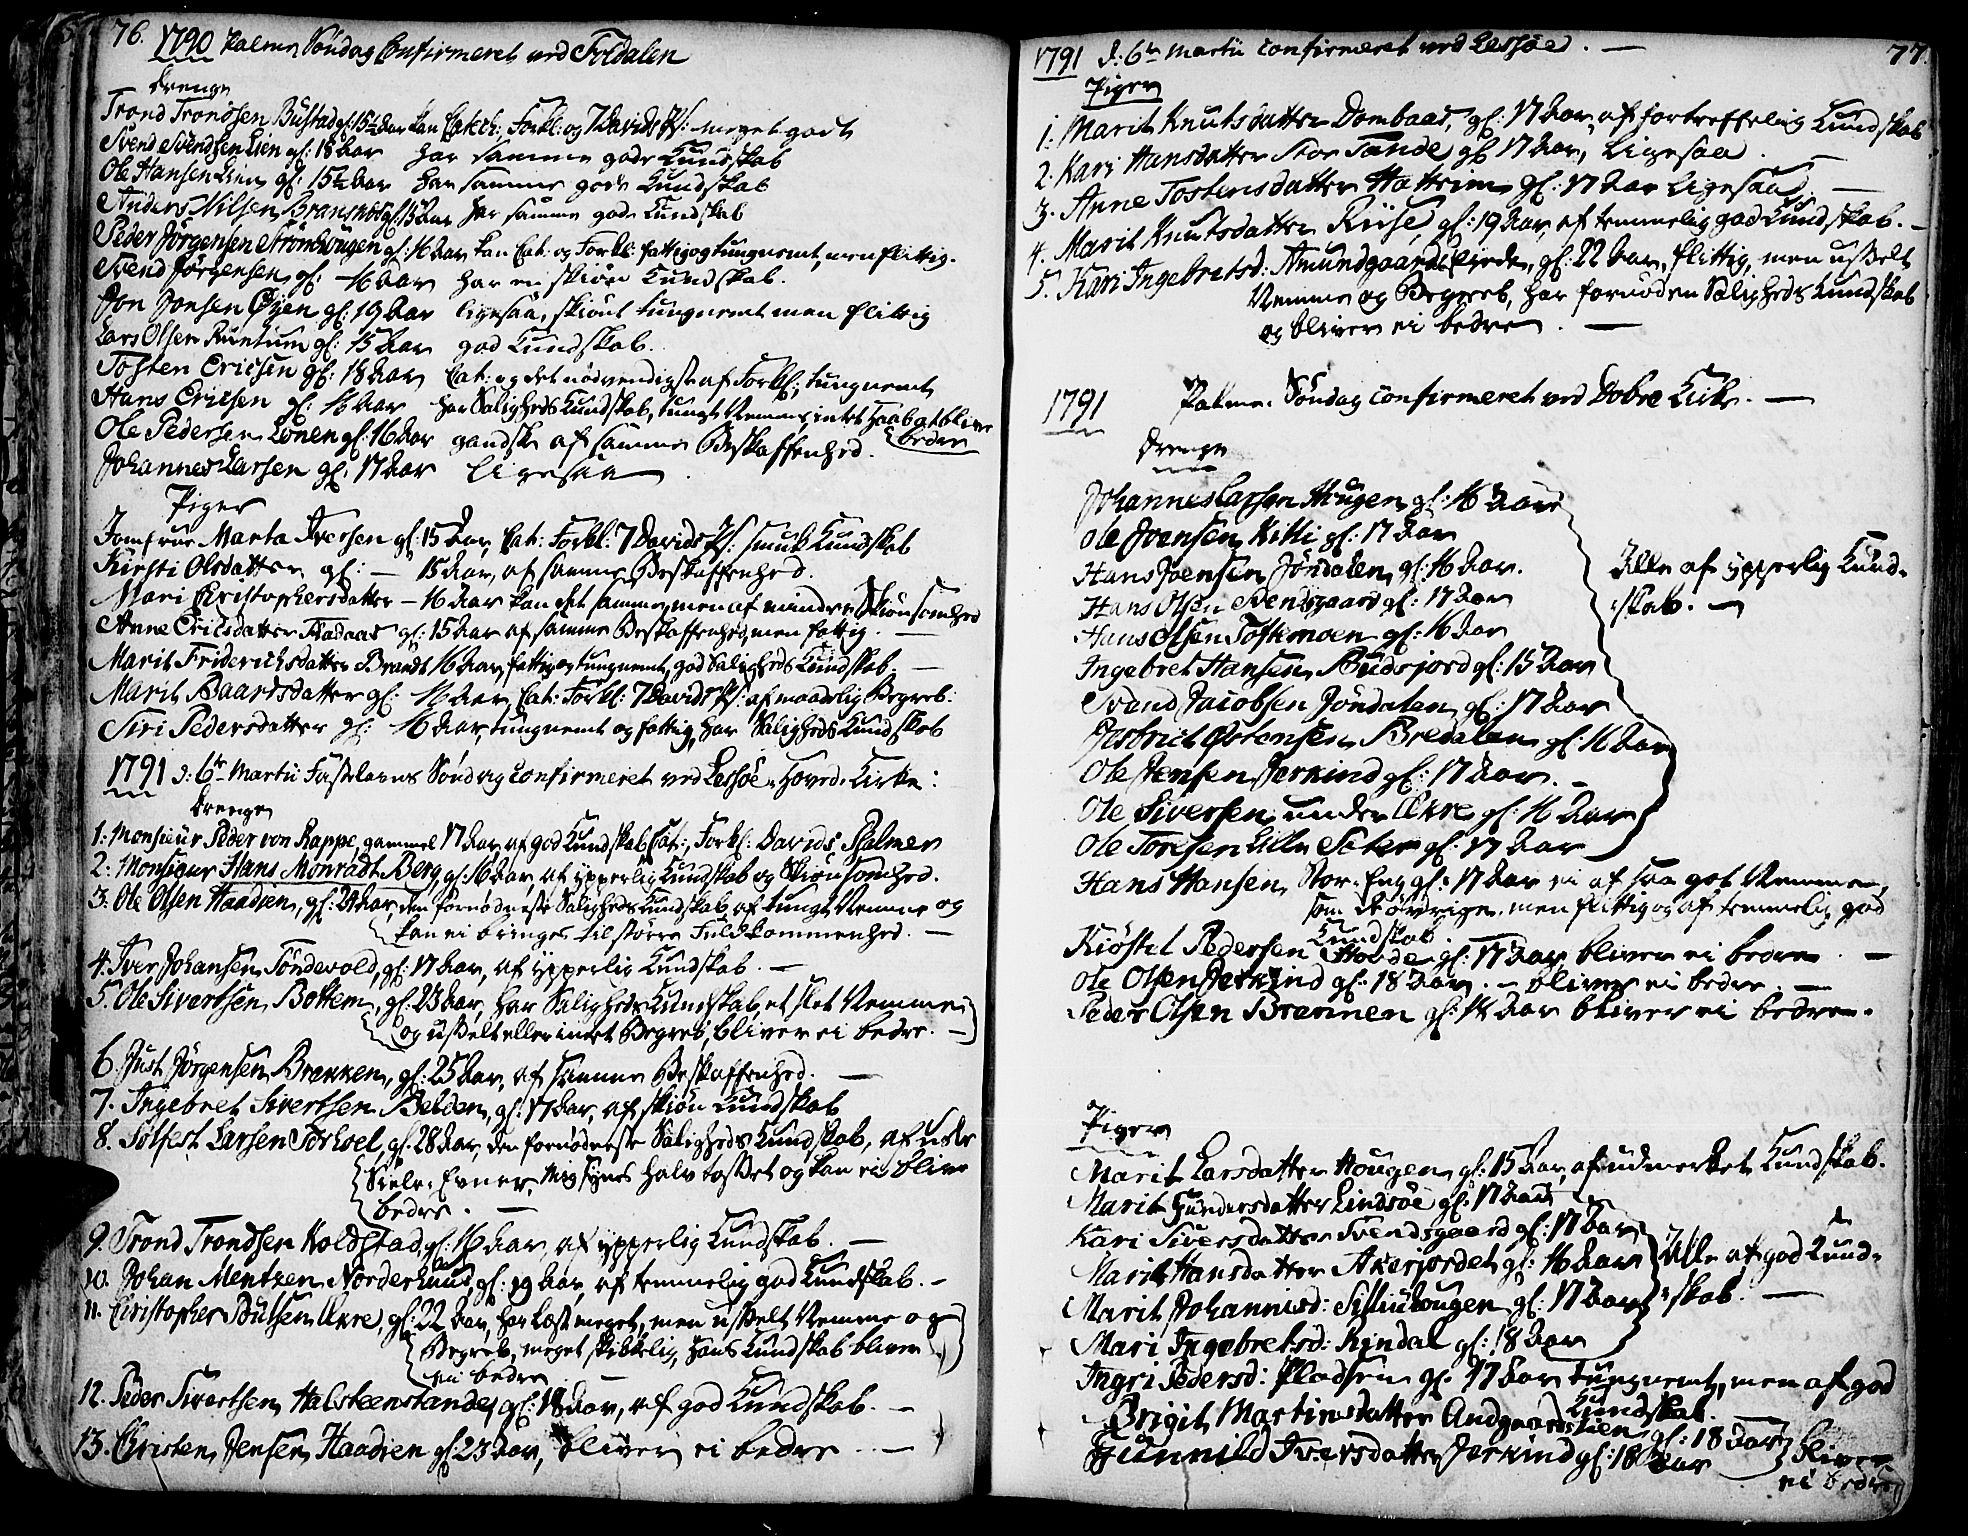 76. 1790 Palme Söndag Confirmeret ved Foldalen
Drenge
Trond Trondsen Bustad gl: 15½ Aar kan Catech: Forkl: og 7 Davids Ps: meget godt
Svend Svendsen Lien gl: 18 Aar har samme gode Kundskab
Ole Hansen Lien gl: 15½ Aar har samme gode Kundskab
Anders Nilsen gl: 15 Aar har samme gode Kundskab
Peder Jörgensen gl: 16 Aar kan Cat: og Forkl: fattig og tungnemt, men flittig.
Svend Jörgensen gl: 16 Aar har en skiön Kundskab.
Jon Jonsen Öyen gl: 19 Aar ligesaa, skiönt tungnemt men flittig
Lars Olsen gl: 15 Aar god Kundskab.
Tosten Ericsen gl: 18 Aar Cat: og det nödvendigste af Forkl; tungnemt
Hans Ericsen gl: 16 Aar har Saligheds Kundskab, tungt Nemme, intet Haab at blive bedre
Ole Pedersen Lonen gl: 16 Aar gandske af samme Beskaffenhed.
Johannes Larsen gl: 17 Aar ligesaa.
Piger
Jomfrue Marta Iversen gl: 15 Aar, Cat: Forkl: 7 Davids Ps: smuk Kundskab
Kirsti Olsdatter gl: — 15 Aar, af samme Beskaffenhed.
Mari Christophersdatter — 16 Aar kan det samme, men af mindre Skiönsomhed
Anne Ericsdatter gl: 15 Aar af samme Beskaffenhed, men fattig. —
Marit Friderichsdatter Brandt 16 Aar, fattig og tungnemt, god Saligheds Kundskab. —
Marit Baardsdatter gl: 16 Aar, Cat: Forkl: 7 Davids Ps: af maadelig Begreb.
Siri Pedersdatter gl: 16 Aar, tungnemt og fattig, har Saligheds Kundskab
1791 d: 6te Martii Fastelavns Söndag confirmeret ved Lessöe Hoved-Kirke:
Drenge
1. Monsieur Peder von Rappe, gammel 17 Aar, af god Kundskab Cat:, Forkl: Davids Psalmer
2. Monsieur Hans Monradt Berg, gl: 16 Aar, af ypperlig Kundskab og Skiönsomhed.
3. Ole Olsen Haadsen, gl: 24 Aar, den fornödneste Saligheds Kundskab af tungt Nemme og
kan ei bringes til större Fuldkommenhed. —
4. Iver Johansen Töndevold, gl: 17 Aar, af ypperlig Kundskab. —
5. Ole Sivertsen Bottem, gl: 23 Aar, har Saligheds Kundskab, et slet Nemme
og usselt eller intet Begreb, bliver ei bedre. —
6. Just Jörgensen Brækken, gl: 25 Aar, af samme Beskaffenhed. —
7. Ingebret Sivertsen, gl: 17 Aar, af skiön Kundskab
8. Solfest Larsen, gl: 28 Aar, den fornödneste Saligheds Kundskab, af usle
Siele-Evner, mig synes halv tosset og kan ei blive
bedre. —
9. Trond Trondsen Holdstad, gl: 16 Aar, af ypperlig Kundskab. —
10. Johan Mentzen Norderhuus, gl: 19 Aar, af temmelig god Kundskab. —
11. Christopher gl: 22 Aar, har læst meget, men usselt Nemme og
Begreb, meget skikkelig, Hans Kundskab bliver
ei bedre
12. Peder Sivertsen, gl: 18 Aar, af god Kundskab. —
13. Christen Jensen Haadsen gl: 23 Aar, bliver ei bedre. —
1791 d: 6te Martii confirmeret ved Lessöe. — 77
Piger
1. Marit Knutsdatter Dombaas, gl: 17 Aar, af fortreffelig Kundskab
2. Kari Hansdatter Stor Tande gl: 17 Aar, ligesaa.
3. Anne Tostensdatter Hattrem gl: 17 Aar ligesaa. —
4. Marit Knutsdatter Riise, gl: 19 Aar, af temmelig god Kundskab. —
5. Kari Ingebretsd: gl: 22 Aar, flittig, men usselt
Nemme og Begreb, har fornöden Saligheds Kundskab
og bliver ei bedre. —
1791 Palme-Söndag confirmeret ved Dovre Kirke. —
Drenge
Johannes Larsen Hougen gl: 16 Aar
Ole Joensen gl: 17 Aar
Hans Joensen Jöndalen gl: 16 Aar.
Hans Olsen Svendsgaard gl: 17 Aar
Alle af ypperlig Kund-
skab. —
Hans Olsen Toftemoen gl: 16 Aar
Ingebret Hansen Budsjord gl: 15 Aar
Svend Jacobsen Jöndalen gl: 17 Aar
Östensen Bredalen gl: 16 Aar
Ole Jensen Jerkind gl: 17 Aar. —
Ole Siversen under gl: 16 Aar
Ole Toresen Lille gl: 17 Aar
Hans Hansen Stor-Eng gl: 17 Aar ei af saa got Nemme,
som de övrige, men flittig og af temmelig god
Kundskab.
Kiöstel Pedersen gl: 17 Aar bliver ei bedre. —
Ole Olsen Jerkind gl: 18 Aar. — bliver ei bedre. —
Peder Olsen Brennen gl: Aar bliver ei bedre.
Piger
Marit Larsdatter Hougen gl: 15 Aar, af udmerket Kundskab.
Marit Gundersdatter Lindsöe gl: 17 Aar
Kari Siversdatter Svendsgaard gl: 17 Aar
Marit Hansdatter gl: 16 Aar
Alle af god Kund-
skab. —
Marit Johannisd: gl: 17 Aar
Mari Ingebretsd: Kindal gl: 18 Aar
Ingri Pedersd: Pladsen gl: 17 Aar tungnemt, men af god
Kundskab.
Brigit Martinsdatter gl: 18 Aar
Gunnild Iversdatter Jerkind gl: 18 Aar
bliver
ei bedre